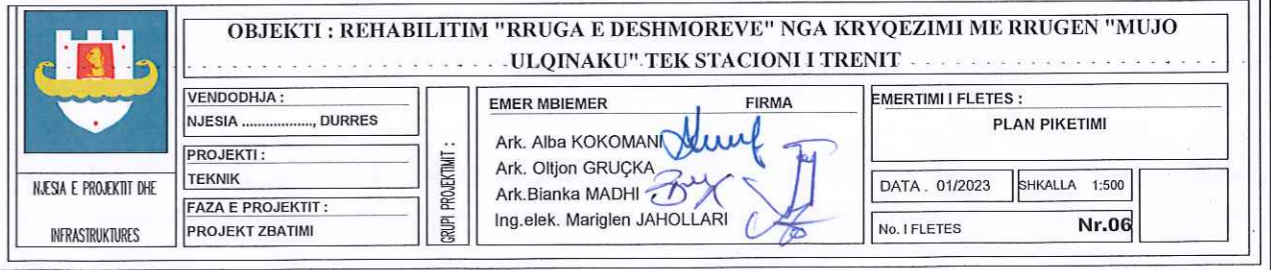 OBJEKTI : REHABILITIM "RRUGA E DESHMOREVE" NGA KRYQEZIMI ME RRUGEN "MUJO
ULQINAKU" TEK STACIONI I TRENIT
NJESIA E PROJEKTIT DHE
INFRASTRUKTURES
VENDODHJA :
NJESIA ..................., DURRES
PROJEKTI :
TEKNIK
FAZA E PROJEKTIT :
PROJEKT ZBATIMI
GRUPI PROJEKTIMIT :
EMER MBIEMER FIRMA
Ark. Alba KOKOMANI
Ark. Oltjon GRUÇKA
Ark.Bianka MADHI
Ing.elek. Mariglen JAHOLLARI
EMERTIMI I FLETES :
PLAN PIKETIMI
DATA . 01/2023 SHKALLA 1:500
No. I FLETES Nr.06